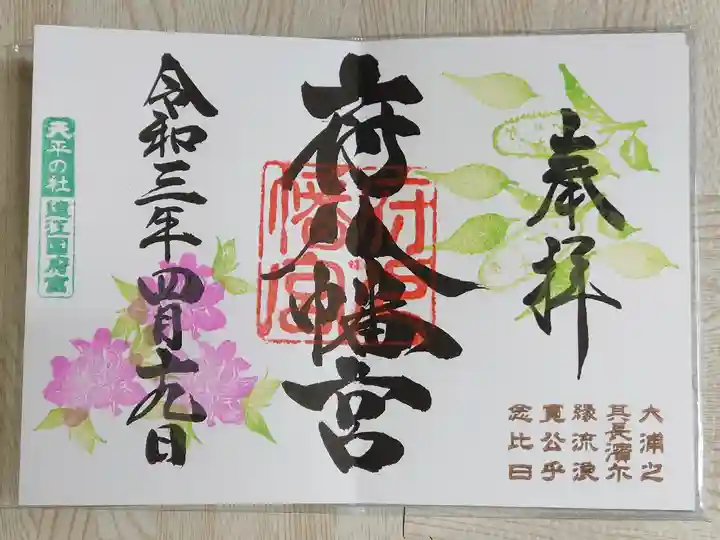 奉拝
府八幡宮
令和三年四月十九日
府八
幡宮
天平の社 遠江国府宮
大浦之
其長濱尓
縁流浪
寛公乎
念比日